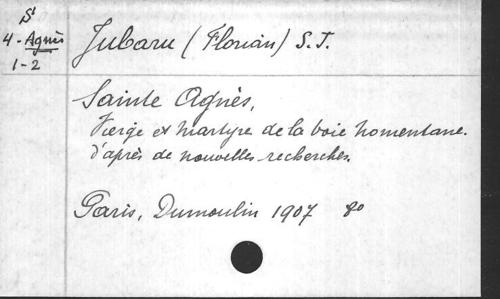 St
4-Agnès
1-2
Jubaru (Florian) S.J.
Sainte Agnès,
Vierge et martyre de la voie nomentane.
d'après de nouvelles recherches.
Paris, Dumoulin 1907 8o